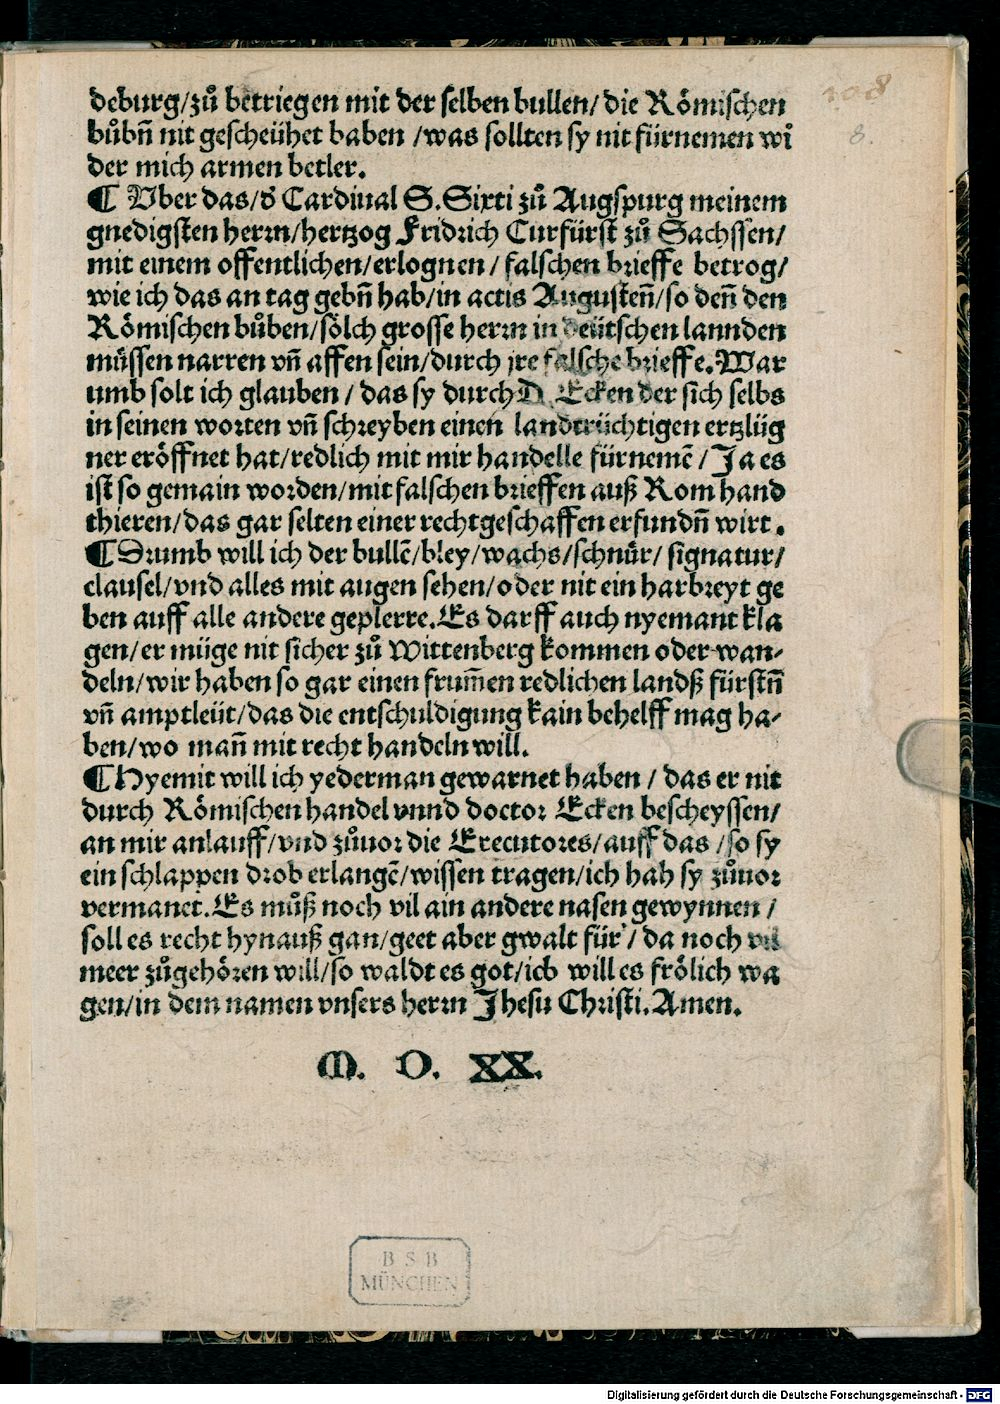 108
8.
deburg/zů betriegen mit der selben bullen/die Römischen
bůbñ nit gescheühet haben /was sollten sy nit fürnemen wi
der mich armen betler.
¶ Vber das/d̕ Cardinal S. Sixti zů Augspurg meinem
gnedigsten herrn/hertzog Fridrich Curfürst zů Sachssen/
mit einem offentlichen/erlognen / falschen brieffe betrog/
wie ich das an tag gebñ hab/in actis Augusteñ/so deñ den
Römischen bůben/sölch grosse herrn in deütschen lannden
müssen narren vñ affen sein/durch jre falsche brieffe. War
umb solt ich glauben / das sy durch D. Ecken der sich selbs
in seinen worten vñ schreyben einen landtrüchtigen ertzlüg
ner eröffnet hat/redlich mit mir handelle fürnemē / Ja es
ist so gemain worden/mit falschen brieffen auß Rom hand
thieren/das gar selten einer rechtgeschaffen erfundñ wirt.
¶ Drumb will ich der bullē/bley/wachs/schnür/ signatur/
clausel/vnd alles mit augen sehen/oder nit ein harbreyt ge
ben auff alle andere geplerre. Es darff auch nyemant kla
gen/er müge nit sicher zů Wittenberg kommen oder wan-
deln/wir haben so gar einen frum̄en redlichen landß fürstñ
vñ amptleüt/das die entschuldigung kain behelff mag ha-
ben/wo mañ mit recht handeln will.
¶ Hyemit will ich yederman gewarnet haben / das er nit
durch Römischen handel vnnd doctor Ecken bescheyssen/
an mir anlauff/vnd zůuor die Executores/auff das /so sy
ein schlappen drob erlangē/wissen tragen/ich hab sy zůuor
vermanet. Es můß noch vil ain andere nasen gewynnen /
soll es recht hynauß gan/geet aber gwalt für / da noch vil
meer zůgehören will/so waldt es got/ich will es frölich wa
gen/in dem namen vnsers herrn Jhesu Christi. Amen.
M. D. XX.
BSB
MÜNCHEN
Digitalisierung gefördert durch die Deutsche Forschungsgemeinschaft - DFG